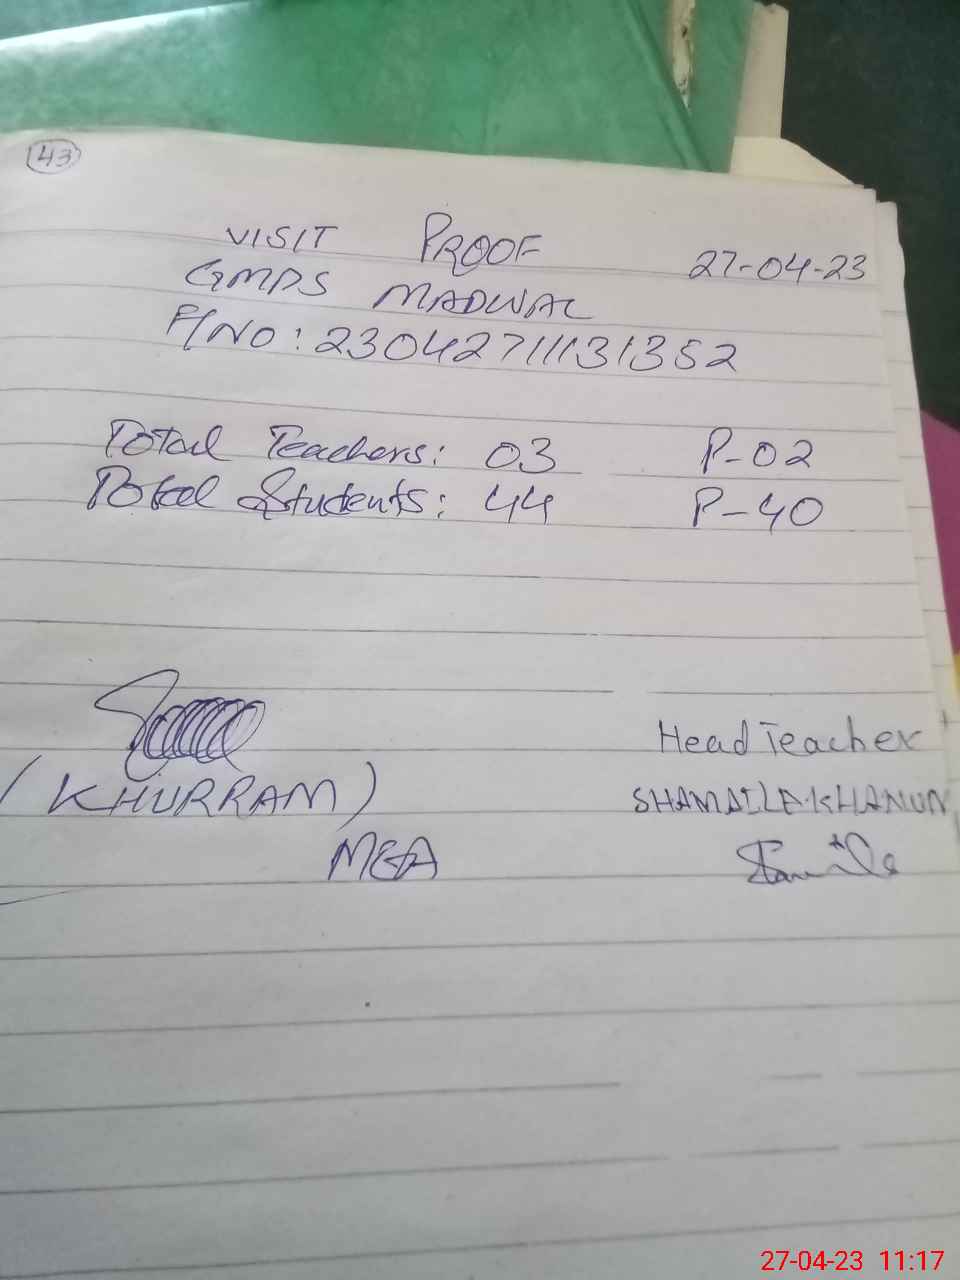 43
VISIT PROOF 27-04-23
GMPS MADWAL
P/NO: 23042711131352
Total Teachers: 03 P-02
Total Students: 44 P-40
Head Teacher
(KHURRAM) SHAMAILA KHANUN
MEA
27-04-23 11:17